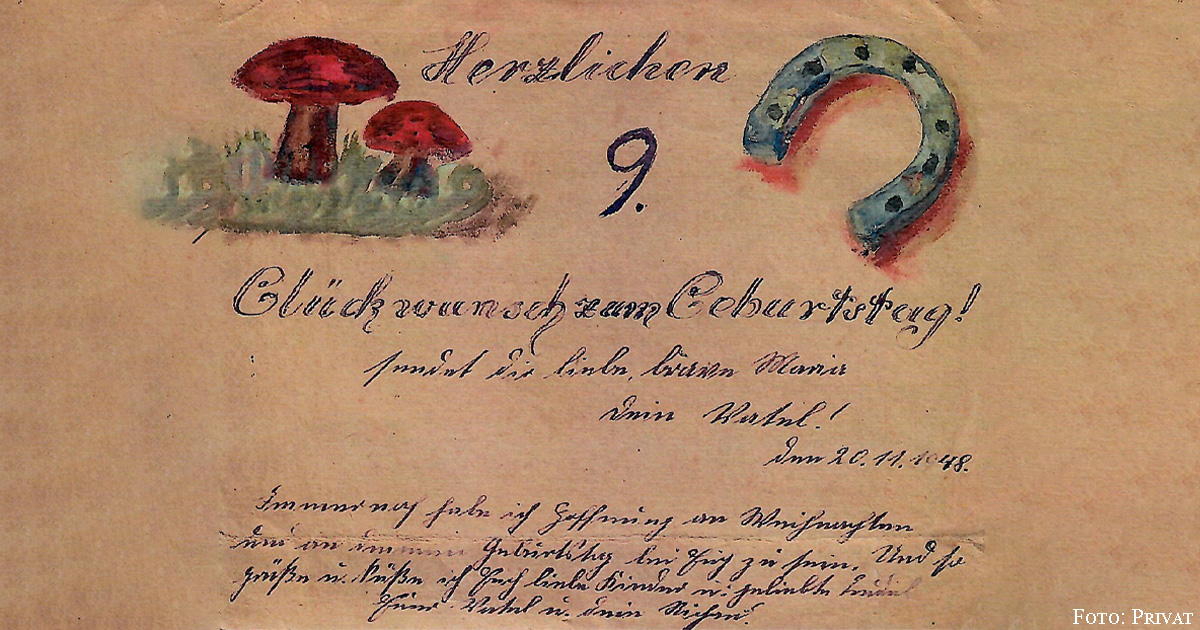 Herzlichen
9.
Glückwunsch zum Geburtstag!
sendet dir liebe, brave Maria
dein Vatel!
den 20.11.1948.
Immernoch habe ich Hoffnung an Weihnachten
und an Geburtstag bei Euch zu sein. Und so
grüße u. küße ich Euch liebe Kinder u. geliebte
Euer Vatel u. dein
Foto: Privat